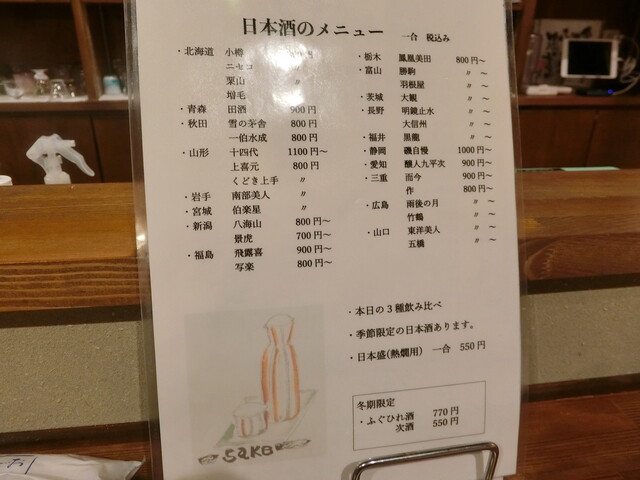 日本酒のメニュー 一合 税込み
・北海道 小樽
ニセコ
栗山 〃
増毛 〃
・青森 田酒 900円
・秋田 雪の茅舎 800円
一白水成 800円
・山形 十四代 1100円～
上喜元 800円
くどき上手 〃
・岩手 南部美人 〃
・宮城 伯楽星 〃
・新潟 八海山 800円～
景虎 700円～
・福島 飛露喜 900円～
写楽 800円～
・栃木 鳳凰美田 800円～
・富山 勝駒 〃 ～
羽根屋 〃 ～
・茨城 大観 〃 ～
・長野 明鏡止水 〃 ～
大信州 〃 ～
・福井 黒龍 〃 ～
・静岡 磯自慢 1000円～
・愛知 醸人九平次 900円～
・三重 而今 900円～
作 800円～
・広島 雨後の月 〃 ～
竹鶴 〃 ～
・山口 東洋美人 〃 ～
五橋 〃 ～
・本日の3種飲み比べ
・季節限定の日本酒あります。
・日本盛(熱燗用) 一合 550円
冬期限定
・ふぐひれ酒 770円
次酒 550円
SAKE